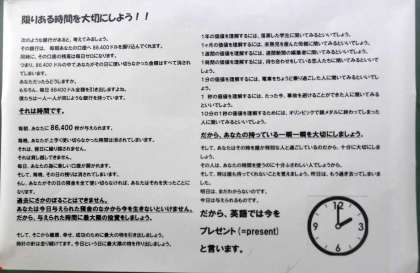 限りある時間を大切にしよう！！
次のような銀行があると、考えてみましょう。
その銀行は、毎朝あなたの口座へ 86,400ドルを振り込んでくれます。
同時に、その口座の残高は毎日ゼロになります。
つまり、86,400ドルの中で、あなたがその日に使い切らなかった金額はすべて消されてしまいます。
あなただったらどうしますか。
もちろん、毎日 86,400ドル全額を引き出しますよね。
僕たちは一人一人が同じような銀行を持っています。
それは時間です。
毎朝、あなたに 86,400 秒が与えられます。
毎晩、あなたが上手く使い切らなかった時間は消されてしまいます。
それは、翌日に繰り越されません。
それは貸し越しできません。
毎日、あなたの為に新しい口座が開かれます。
そして、毎晩、その日の残りは消されてしまいます。
もし、あなたがその日の預金を全て使い切らなければ、あなたはそれを失ったことになります。
過去にさかのぼることはできません。
あなたは今日与えられた預金のなかから今を生きないといけません。
だから、与えられた時間に最大限の投資をしましょう。
そして、そこから健康、幸せ、成功のために最大の物を引き出しましょう。
時計の針は走り続けてます。今日という日に最大限の物を作り出しましょう。
1年の価値を理解するには、落第した学生に聞いてみるといいでしょう。
1ヶ月の価値を理解するには、未熟児を産んだ母親に聞いてみるといいでしょう。
1週間の価値を理解するには、週刊新聞の編集者に聞いてみるといいでしょう。
1時間の価値を理解するには、待ち合わせをしている恋人たちに聞いてみるといいでしょう。
1分の価値を理解するには、電車をちょうど乗り過ごした人に聞いてみるといいでしょう。
1 秒の価値を理解するには、たった今、事故を避けることができた人に聞いてみるといいでしょう。
10分の1秒の価値を理解するためには、オリンピックで銀メダルに終わってしまった人に聞いてみるといいでしょう。
だから、あなたの持っている一瞬一瞬を大切にしましょう。
そして、あなたはその時を誰か特別な人と過ごしているのだから、十分に大切にしましょう。
その人は、あなたの時間を使うのに十分ふさわしい人でしょうから。
そして、時は誰も待ってくれないことを覚えましょう。昨日は、もう過ぎ去ってしまいました。
明日は、まだわからないのです。
今日は与えられるものです。
だから、英語では今を
プレゼント(=present)
と言います。